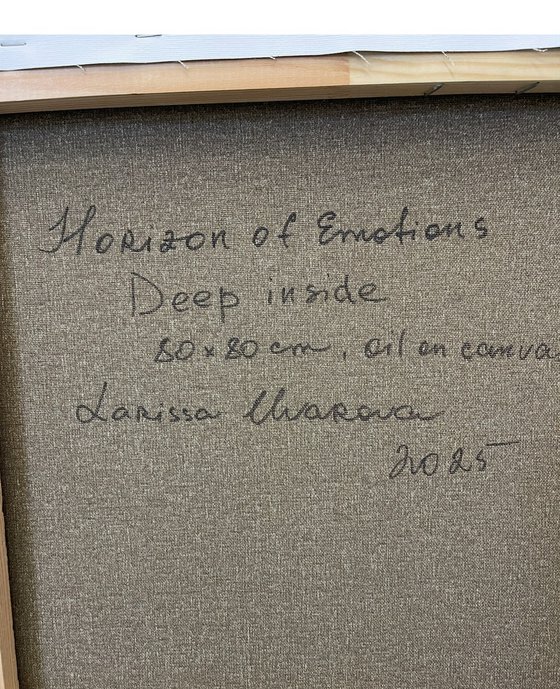 Horizon of Emotions
Deep inside
80 x 80 cm, oil on canva
Larissa Uvarova
2025